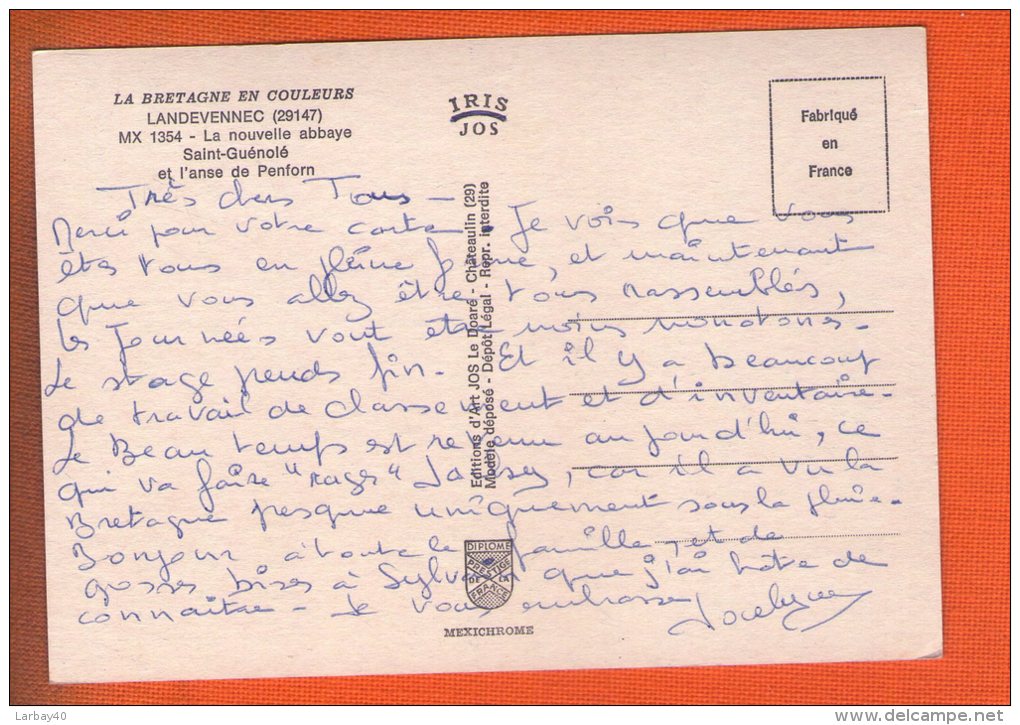 LA BRETAGNE EN COULEURS
LANDEVENNEC (29147)
MX 1354 - La nouvelle abbaye
Saint-Guénolé
et l'anse de Penforn
IRIS
JOS
Fabriqué
en
France
Très chers Tous -
Merci pour votre carte. Je vois que vous
êtes tous en pleine forme, et maintenant
que vous allez être tous rassemblés,
les journées vont être moins monotones.
Le stage prends fin. Et il y a beaucoup
de travail de classement et d'inventaire.
Le Beau temps est revenu aujourd'hui, ce
qui va faire "rager" car il a vu la
Bretagne presque uniquement sous la pluie.
Bonjour à toute la famille, et de
grosses bises à que j'ai hâte de
connaître. Je vous embrasse
Jocelyne
Editions d'Art JOS Le Doaré - Châteaulin (29)
Modèle déposé - Dépôt Légal - Repr. interdite
DIPLOME
PRESTIGE
DE LA
FRANCE
MEXICHROME
Larbay40
www.delcampe.net